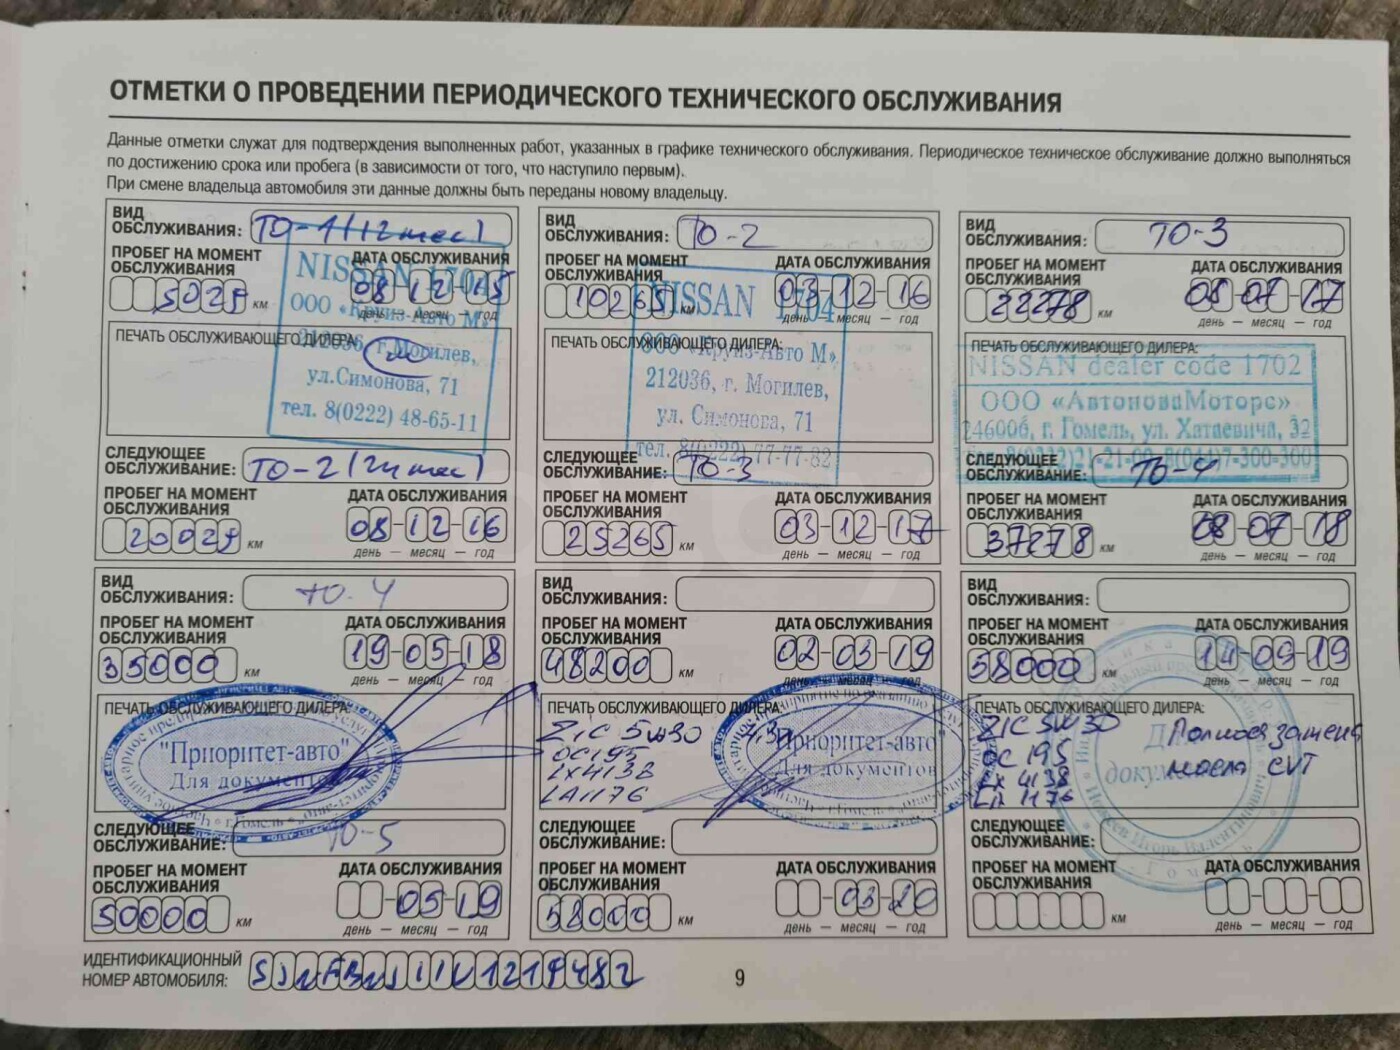 ОТМЕТКИ О ПРОВЕДЕНИИ ПЕРИОДИЧЕСКОГО ТЕХНИЧЕСКОГО ОБСЛУЖИВАНИЯ
Данные отметки служат для подтверждения выполненных работ, указанных в графике технического обслуживания. Периодическое техническое обслуживание должно выполняться
по достижению срока или пробега (в зависимости от того, что наступило первым).
При смене владельца автомобиля эти данные должны быть переданы новому владельцу.
ВИД
ОБСЛУЖИВАНИЯ: ТО-1 (12 мес)
ПРОБЕГ НА МОМЕНТ
ОБСЛУЖИВАНИЯ
5029 км
ДАТА ОБСЛУЖИВАНИЯ
08-12-15
день — месяц — год
ПЕЧАТЬ ОБСЛУЖИВАЮЩЕГО ДИЛЕРА:
NISSAN 1704
ООО «Круиз-Авто М»
212036, г. Могилев,
ул.Симонова, 71
тел. 8(0222) 48-65-11
СЛЕДУЮЩЕЕ
ОБСЛУЖИВАНИЕ: ТО-2 (24 мес)
ПРОБЕГ НА МОМЕНТ
ОБСЛУЖИВАНИЯ
20029 км
ДАТА ОБСЛУЖИВАНИЯ
08-12-16
день — месяц — год
ВИД
ОБСЛУЖИВАНИЯ: ТО-2
ПРОБЕГ НА МОМЕНТ
ОБСЛУЖИВАНИЯ
10265 км
ДАТА ОБСЛУЖИВАНИЯ
03-12-16
день — месяц — год
ПЕЧАТЬ ОБСЛУЖИВАЮЩЕГО ДИЛЕРА:
NISSAN 1704
ООО «Круиз-Авто М»
212036, г. Могилев,
ул. Симонова, 71
тел. 8(0222)-77-77-82
СЛЕДУЮЩЕЕ
ОБСЛУЖИВАНИЕ: ТО-3
ПРОБЕГ НА МОМЕНТ
ОБСЛУЖИВАНИЯ
25265 км
ДАТА ОБСЛУЖИВАНИЯ
03-12-17
день — месяц — год
ВИД
ОБСЛУЖИВАНИЯ: ТО-3
ПРОБЕГ НА МОМЕНТ
ОБСЛУЖИВАНИЯ
22278 км
ДАТА ОБСЛУЖИВАНИЯ
08-07-17
день — месяц — год
ПЕЧАТЬ ОБСЛУЖИВАЮЩЕГО ДИЛЕРА:
NISSAN dealer code 1702
ООО «АвтоноваМоторс»
246006, г. Гомель, ул. Хатаевича, 32
СЛЕДУЮЩЕЕ
ОБСЛУЖИВАНИЕ: ТО-4
ПРОБЕГ НА МОМЕНТ
ОБСЛУЖИВАНИЯ
37278 км
ДАТА ОБСЛУЖИВАНИЯ
08-07-18
день — месяц — год
ВИД
ОБСЛУЖИВАНИЯ: ТО-4
ПРОБЕГ НА МОМЕНТ
ОБСЛУЖИВАНИЯ
35000 км
ДАТА ОБСЛУЖИВАНИЯ
19-05-18
день — месяц — год
ПЕЧАТЬ ОБСЛУЖИВАЮЩЕГО ДИЛЕРА:
"Приоритет-авто"
Для документов
СЛЕДУЮЩЕЕ
ОБСЛУЖИВАНИЕ: ТО-5
ПРОБЕГ НА МОМЕНТ
ОБСЛУЖИВАНИЯ
50000 км
ДАТА ОБСЛУЖИВАНИЯ
05-19
день — месяц — год
ВИД
ОБСЛУЖИВАНИЯ:
ПРОБЕГ НА МОМЕНТ
ОБСЛУЖИВАНИЯ
48200 км
ДАТА ОБСЛУЖИВАНИЯ
02-03-19
день — месяц — год
ПЕЧАТЬ ОБСЛУЖИВАЮЩЕГО ДИЛЕРА:
ZIC 5w30
OC195
LX4138
LA1176
Приоритет-авто"
Для документов
СЛЕДУЮЩЕЕ
ОБСЛУЖИВАНИЕ:
ПРОБЕГ НА МОМЕНТ
ОБСЛУЖИВАНИЯ
58000 км
ДАТА ОБСЛУЖИВАНИЯ
03-20
день — месяц — год
ВИД
ОБСЛУЖИВАНИЯ:
ПРОБЕГ НА МОМЕНТ
ОБСЛУЖИВАНИЯ
58000 км
ДАТА ОБСЛУЖИВАНИЯ
14-09-19
день — месяц — год
ПЕЧАТЬ ОБСЛУЖИВАЮЩЕГО ДИЛЕРА:
ZIC 5W30 Полная замена
OC 195 масла CVT
LX 4138
LA 1176
Для
документов
СЛЕДУЮЩЕЕ
ОБСЛУЖИВАНИЕ:
ПРОБЕГ НА МОМЕНТ
ОБСЛУЖИВАНИЯ
км
ДАТА ОБСЛУЖИВАНИЯ
день — месяц — год
ИДЕНТИФИКАЦИОННЫЙ
НОМЕР АВТОМОБИЛЯ:
9